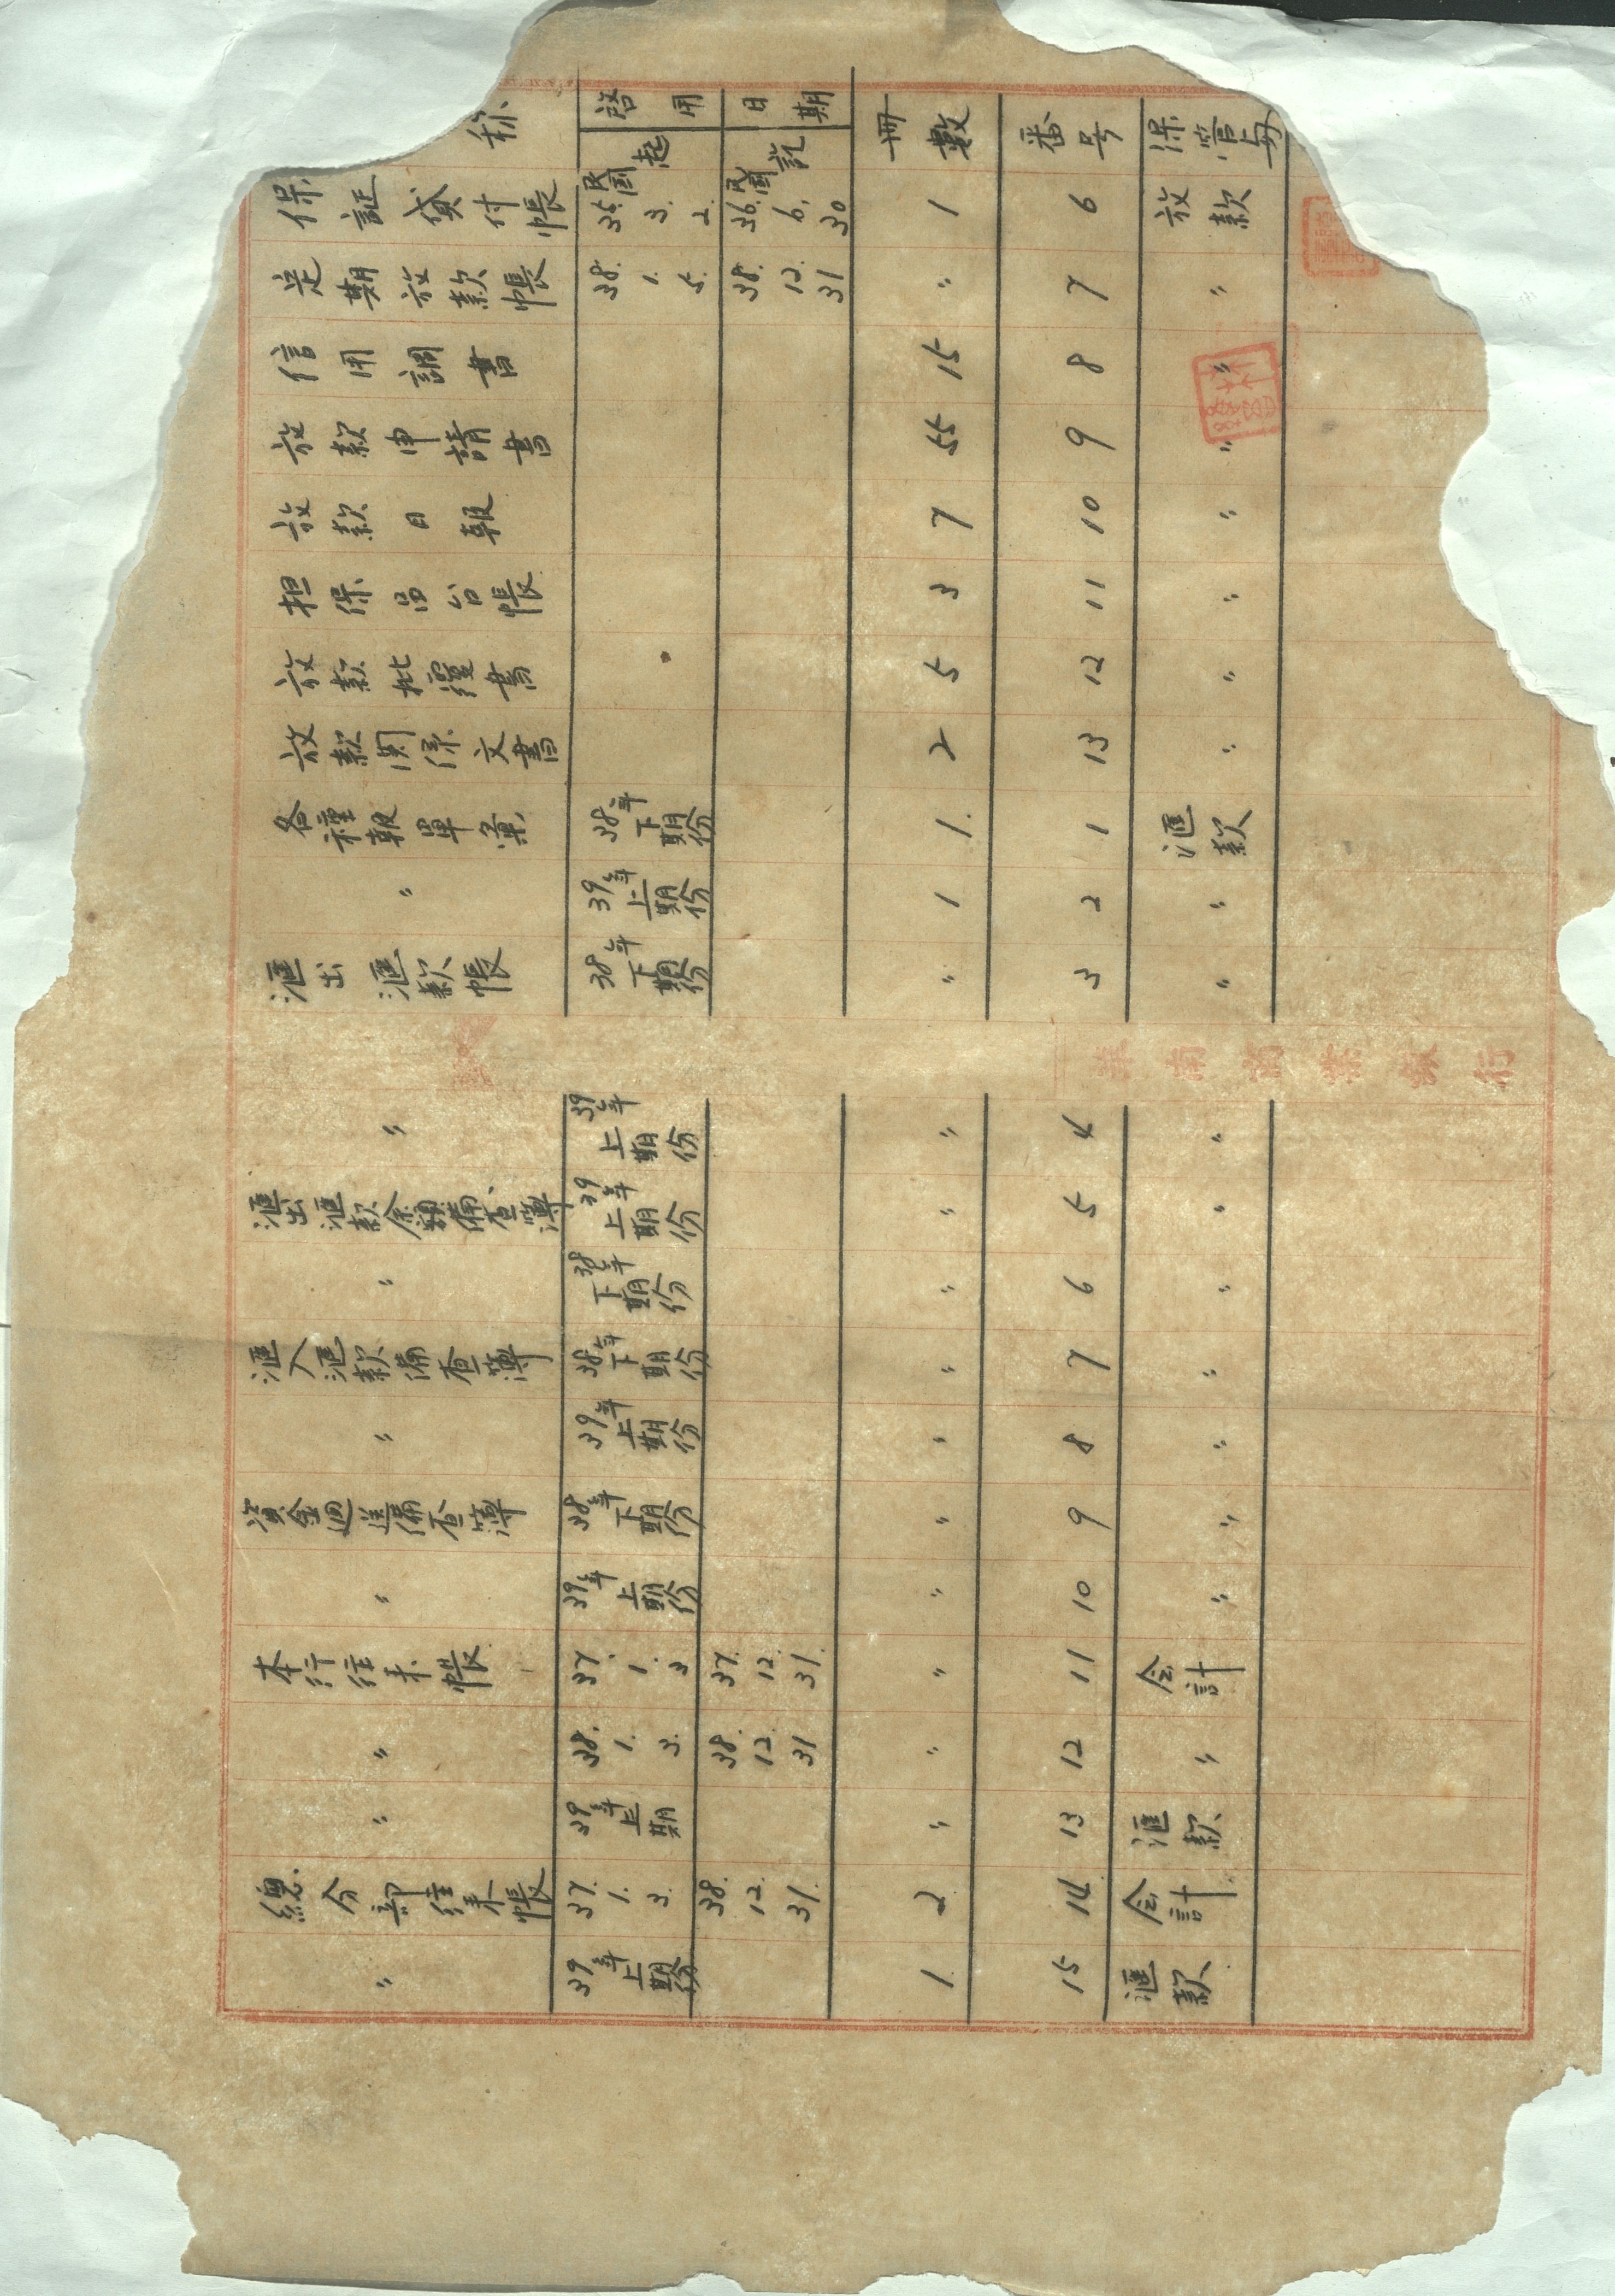 称 啓用日期 起 訖 冊數 番号 保管
保証貸付帳 民國35.3.2. 民國36.6.30 1 6 放款
定期放款帳 38.1.5. 38.12.31 〃 7 〃
信用調書 15 8 〃
放款申請書 55 9 〃
放款日報 7 10 〃
担保品台帳 3 11 〃
放款批覆書 5 12 〃
放款関係文書 2 13 〃
各種報單彙 38年下期份 1. 1 匯款
〃 39年上期份 1 2 〃
匯出匯款帳 38年下期份 〃 3 〃
華南商業銀行
〃 39年上期份 〃 4 〃
匯出匯款余額備查簿 39年上期份 〃 5 〃
〃 38年下期份 〃 6 〃
匯入匯款備查簿 38年下期份 〃 7 〃
〃 39年上期份 〃 8 〃
資金廻送備查簿 38年下期份 〃 9 〃
〃 39年上期份 〃 10 〃
本行往来帳 37.1.3 37.12.31. 〃 11 会計
〃 38.1.3. 38.12.31 〃 12 〃
〃 39年上期 〃 13 匯款
總分部往来帳 37.1.3. 38.12.31. 2 14 会計
〃 39年上期份 1. 15 匯款